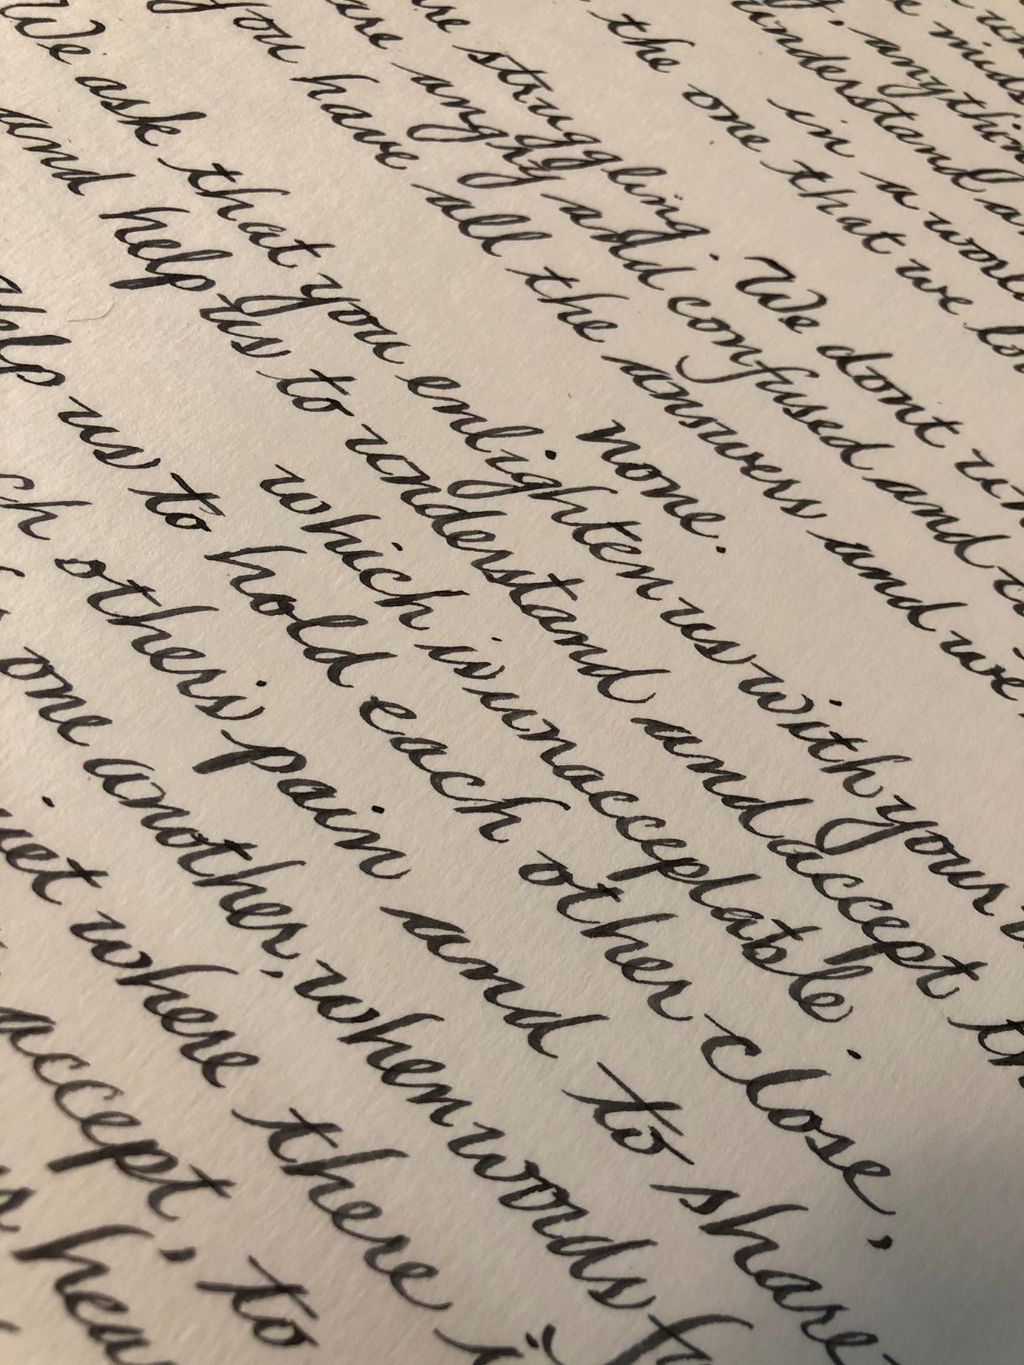 mids
anything
understand
in a
the one that we
struggling. We dont
are angry and confused and
you have all the answers and we
none.
We ask that you enlighten us with your
and help us to understand and accept
which is unacceptable.
help us to hold each other close,
others pain and to share
one another, when words
where there
accept, to